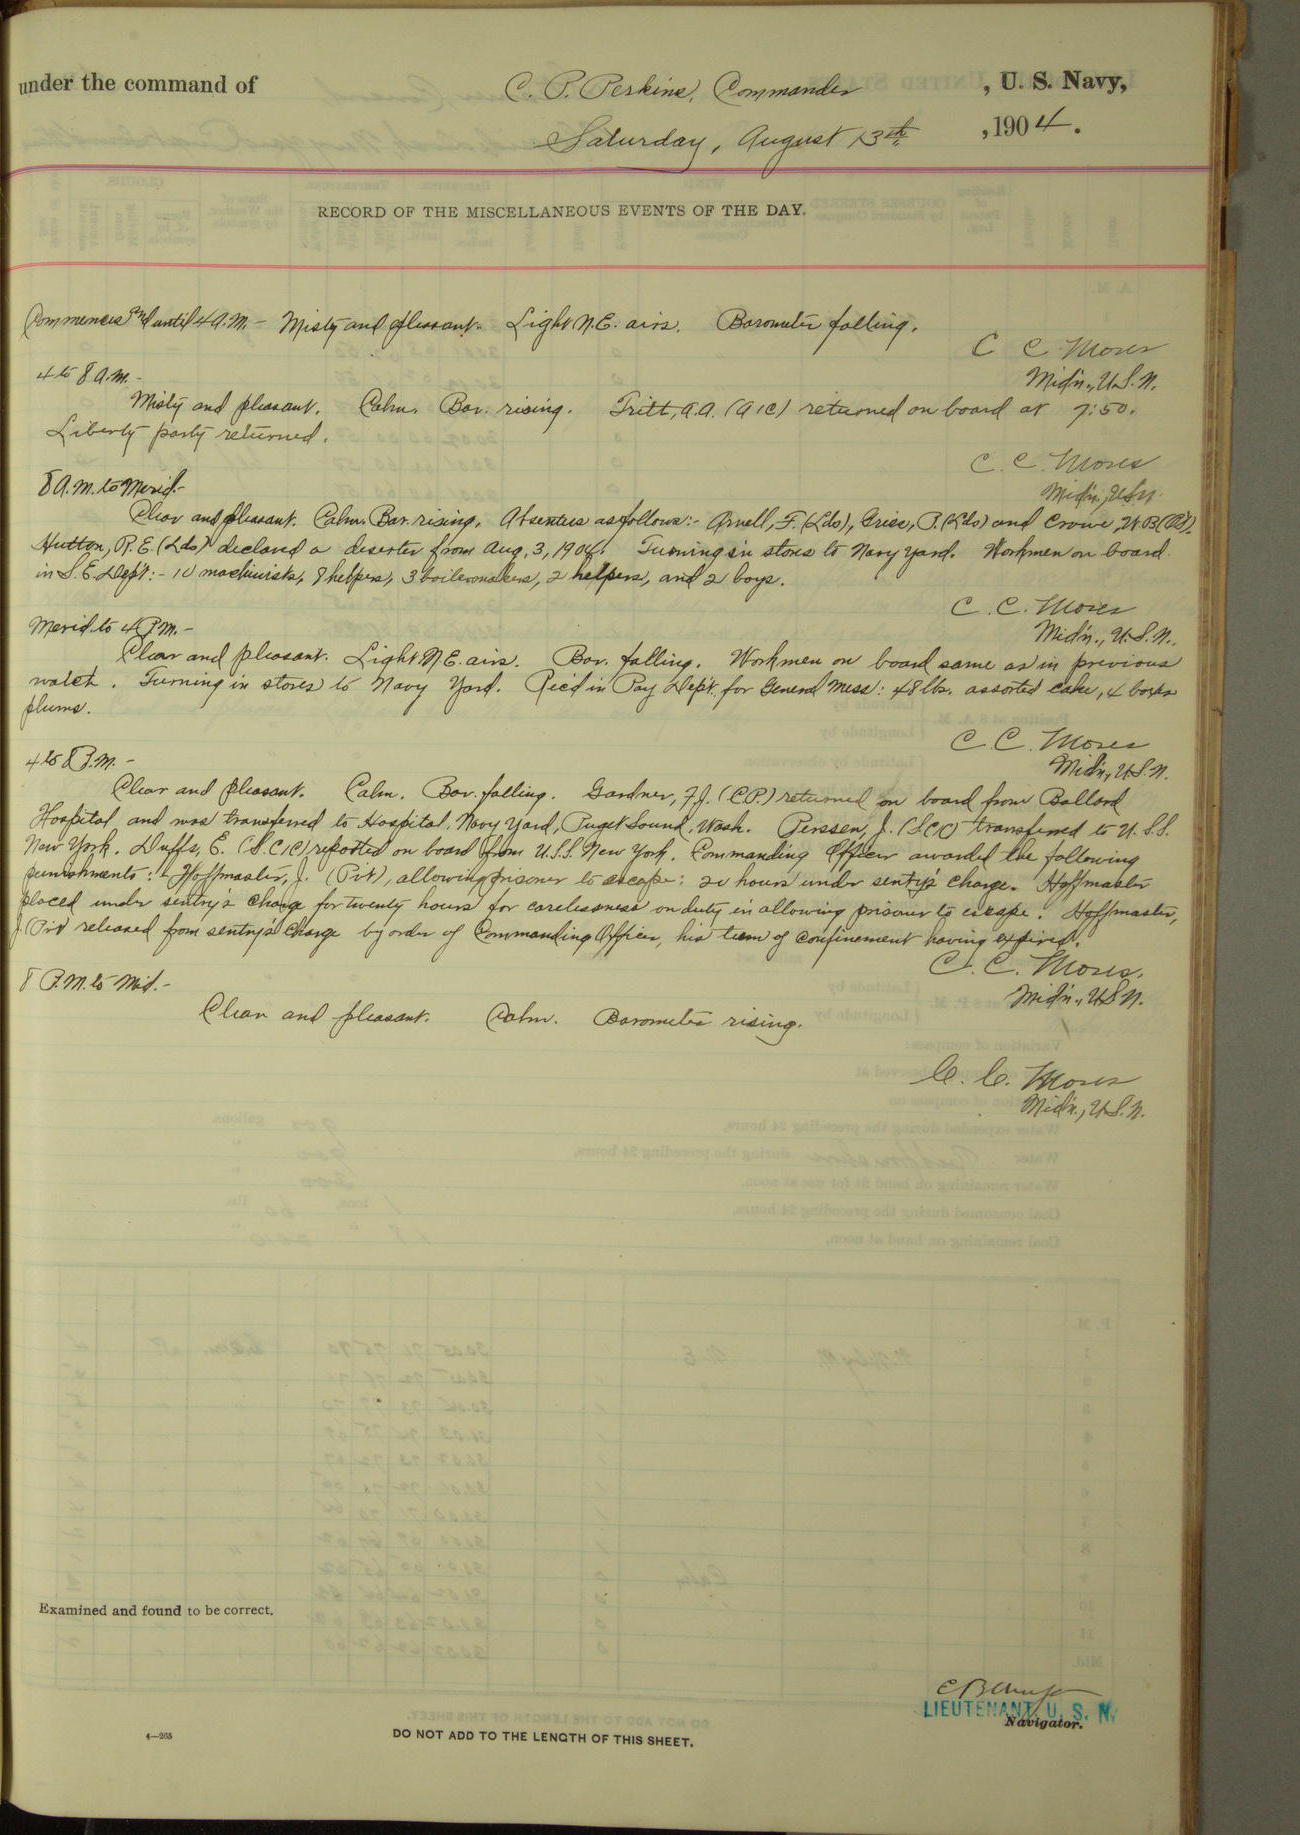 under the command of C. P. Perkins, Commander, U. S. Navy,
Saturday, August 13th, 1904.
RECORD OF THE MISCELLANEOUS EVENTS OF THE DAY.
Commences and until 4 A.M. - Misty and pleasant. Light N.E. airs. Barometer falling.
C C Moses
Mid'n., U.S.N.
4 to 8 A.M. -
Misty and pleasant. Calm. Bar. rising. Tritt, A.A. (A1C) returned on board at 7:50.
Liberty party returned.
C. C. Moses
Mid'n., U.S.N.
8 A.M. to Merid. -
Clear and pleasant. Calm. Bar. rising. Absentees as follows:- Arnell, F. (Lds), Grise, P. (Lds) and Crowe, W.B.
Hutton, R.E. (Lds) declared a deserter from Aug. 3, 1904. Turning in stores to Navy Yard. Workmen on board
in S.E. Dep't:- 10 machinists, 8 helpers, 3 boilermakers, 2 helpers, and 2 boys.
C. C. Moses
Mid'n., U.S.N.
Merid. to 4 P.M. -
Clear and pleasant. Light N.E. airs. Bar. falling. Workmen on board same as in previous
watch. Turning in stores to Navy Yard. Rec'd in Pay Dep't. for General Mess: 48 lbs. assorted cake, 4 boxes
plums.
C. C. Moses
Mid'n., U.S.N.
4 to 8 P.M. -
Clear and pleasant. Calm. Bar. falling. Gardner, F.J. (C.P.) returned on board from Ballard
Hospital and was transferred to Hospital, Navy Yard, Puget Sound, Wash. Perssen, J. (SCC) transferred to U.S.S.
New York. Duffs, E. (S.C.1C) reported on board from U.S.S. New York. Commanding Officer awarded the following
punishments:- Hoffmaster, J. (Pvt), allowing prisoner to escape: 20 hours under sentry's charge. Hoffmaster
placed under sentry's charge for twenty hours for carelessness on duty in allowing prisoner to escape. Hoffmaster,
J. (Pvt) released from sentry's charge by order of Commanding Officer, his term of confinement having expired.
C. C. Moses.
Mid'n., U.S.N.
8 P.M. to Mid. -
Clear and pleasant. Calm. Barometer rising.
C. C. Moses
Mid'n., U.S.N.
Examined and found to be correct.
LIEUTENANT, U. S. N.
Navigator.
4—265
DO NOT ADD TO THE LENGTH OF THIS SHEET.